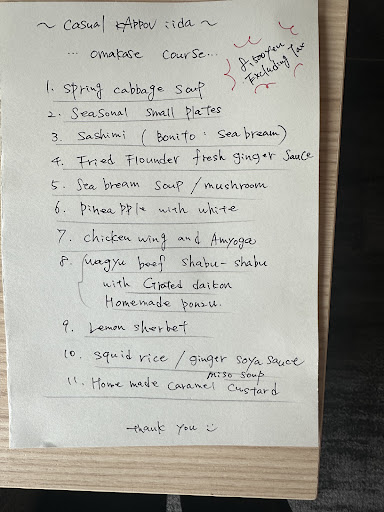 ~ Casual KAPPOU iida ~
... omakase course...
8,500yen
Excluding Tax
1. Spring cabbage soup
2. Seasonal small plates
3. Sashimi ( Bonito · Sea bream)
4. Fried Flounder fresh ginger sauce
5. Sea bream soup / mushroom
6. Pineapple with white
7. Chicken wing and Amyoga
8. wagyu beef shabu-shabu
with Grated daikon
Homemade ponzu.
9. Lemon sherbet
10. Squid rice / ginger soya sauce
miso soup
11. Home made Caramel Custard
thank you